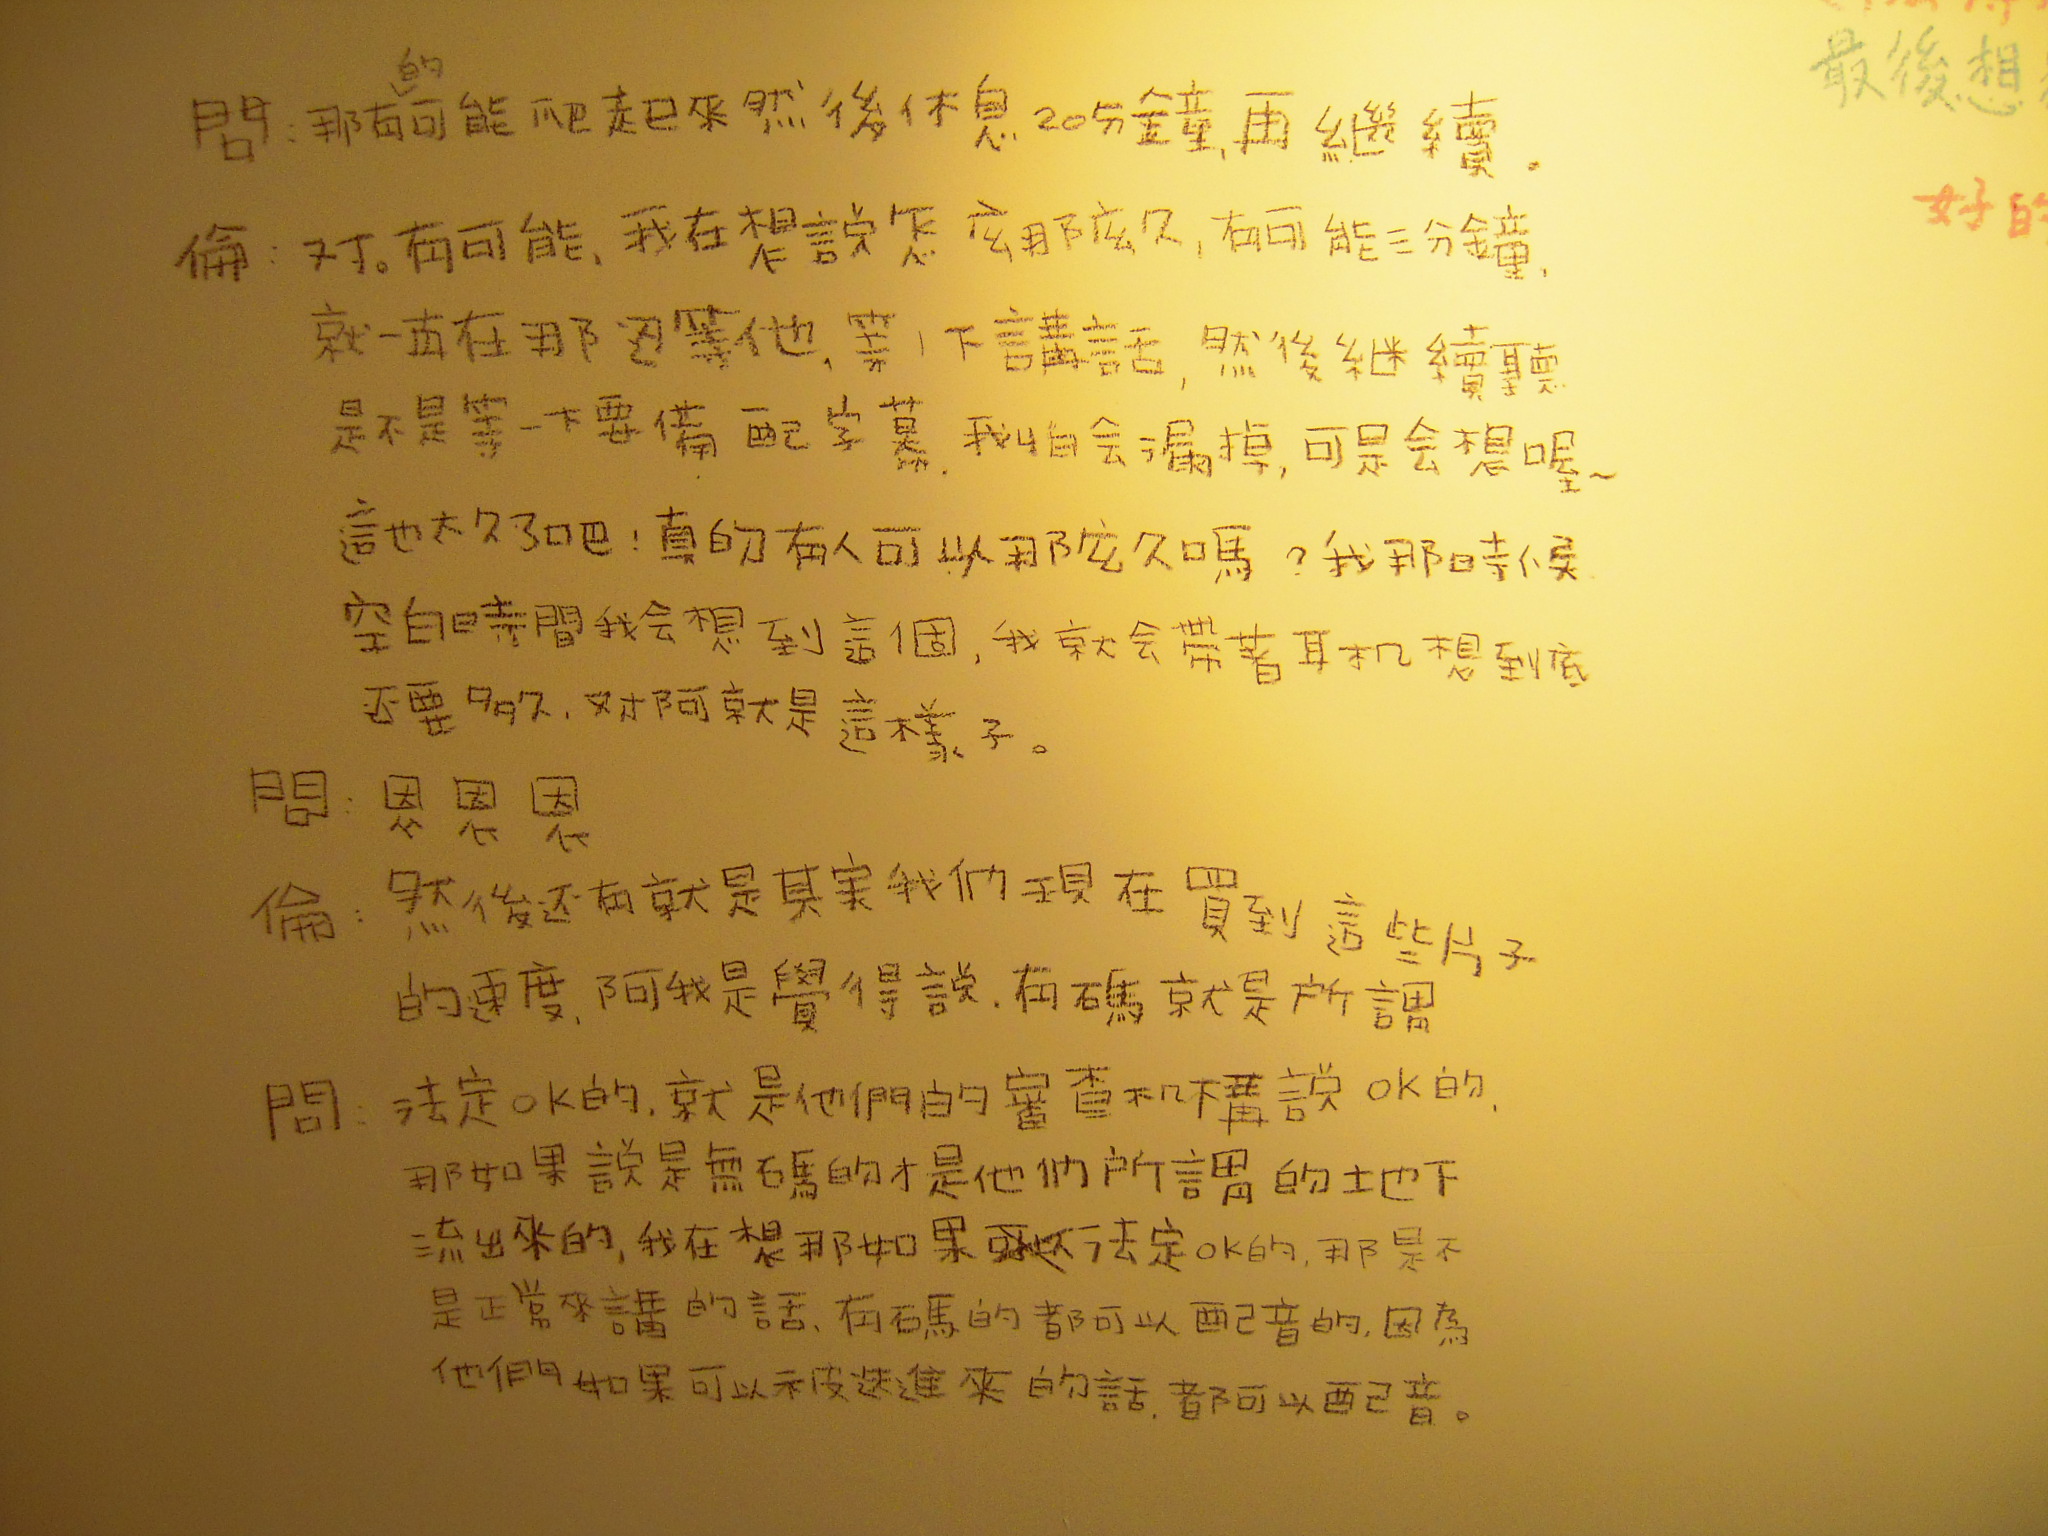 問：那有的可能爬起來然後休息20分鐘，再繼續。
倫：对。有可能，我在想說怎麼那麼久，有可能三分鐘，
就一直在那邊等他，等一下講話，然後継續聽
是不是等一下要備配字幕，我怕会漏掉，可是会想喔~
這也太久了吧！真的有人可以那麼久嗎？我那時候
空白時間我会想到這個，我就会帶著耳机想到底
还要多久，对阿就是這樣子。
問：恩恩恩
倫：然後还有就是其实我們現在買到這些片子
的速度，阿我是覺得說，有碼就是所謂
問：法定OK的，就是他們的審查机構說OK的，
那如果說是無碼的才是他們所謂的地下
流出來的，我在想那如果法定OK的，那是不
是正常來講的話，有碼的都可以配音的，因為
他們如果可以被送進來的話，都可以配音。
最後想
好的